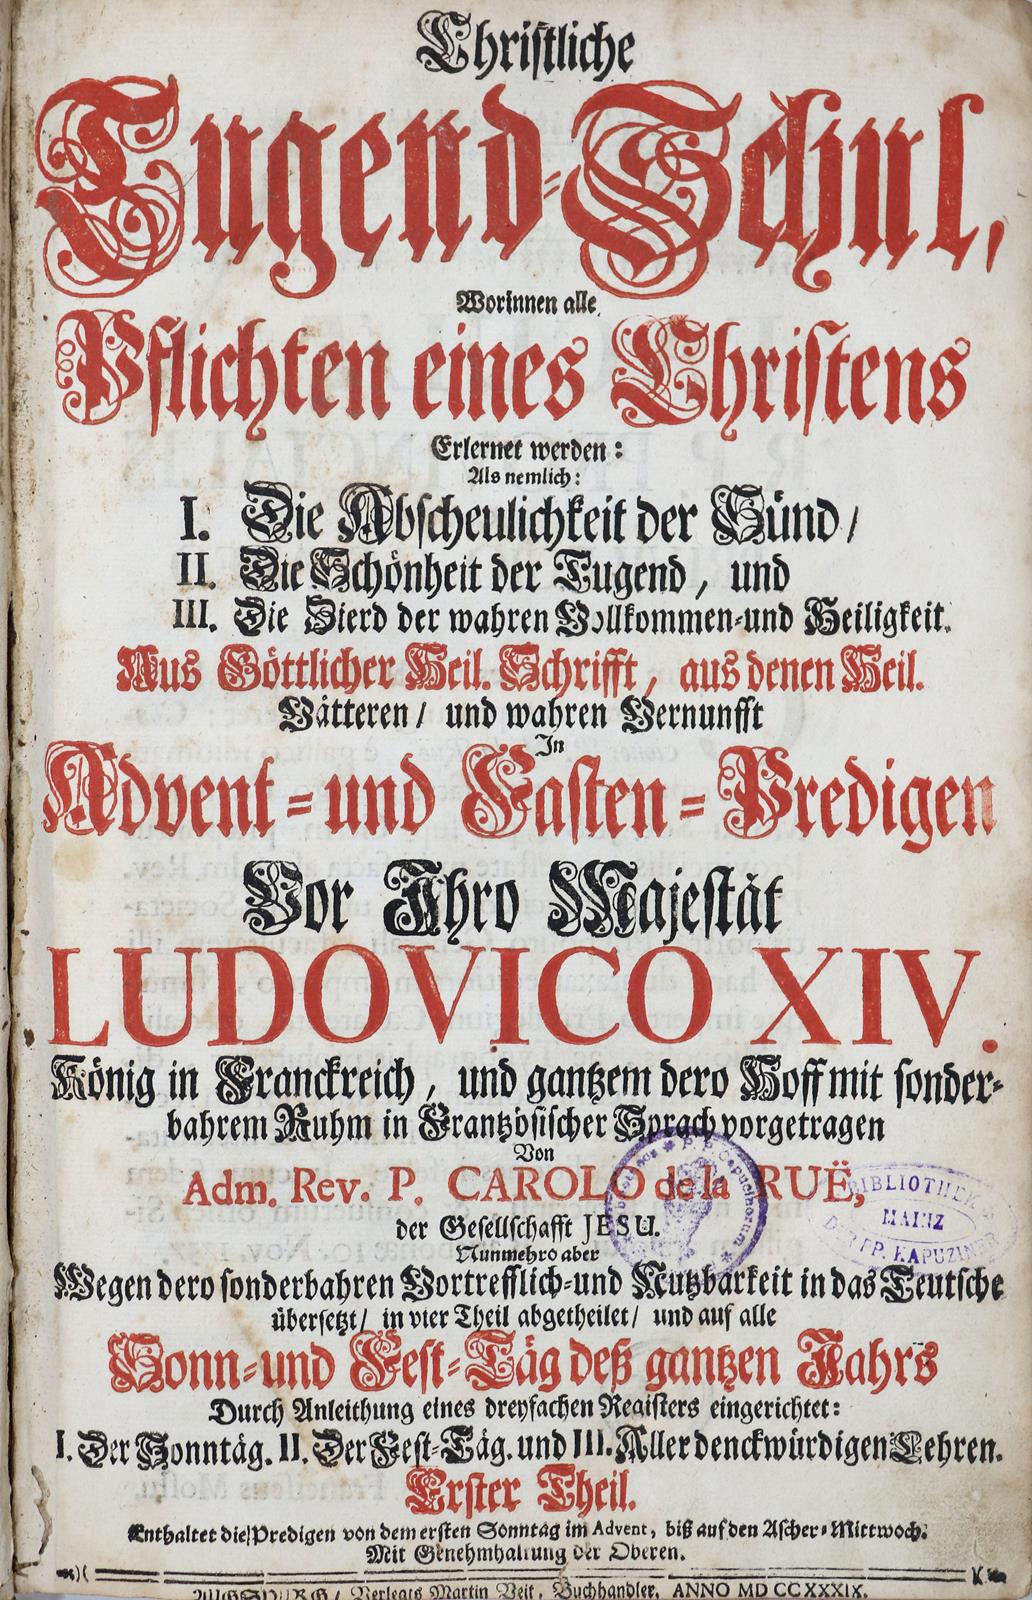 Christliche
Tugend-Schul,
Worinnen alle
Pflichten eines Christens
Erlernet werden:
Als nemlich:
I. Die Abscheulichkeit der Sünd /
II. Die Schönheit der Tugend, und
III. Die Zierd der wahren Vollkommen-und Heiligkeit.
Aus Göttlicher Heil. Schrifft, aus denen Heil.
Vätteren / und wahren Vernunfft
In
Advent-und Fasten-Predigen
Vor Ihro Majestät
LUDOVICO XIV.
König in Franckreich, und gantzem dero Hoff mit sonder-
bahrem Ruhm in Frantzösischer Sprach vorgetragen
Von
Adm. Rev. P. CAROLO de la RUË,
der Gesellschafft JESU.
Nunmehro aber
Wegen dero sonderbahren Vortrefflich-und Nutzbarkeit in das Teutsche
übersetzt / in vier Theil abgetheilet / und auf alle
Sonn-und Fest-Täg deß gantzen Jahrs
Durch Anleithung eines dreyfachen Registers eingerichtet:
I. Der Sonntäg. II. Der Fest-Täg. und III. Aller denckwürdigen Lehren.
Erster Theil.
Enthaltet die Predigen von dem ersten Sonntag im Advent, biß auf den Ascher-Mittwoch.
Mit Genehmhaltung der Oberen.
AUGSPURG / Verlegts Martin Veit, Buchhandler, ANNO MDCCXXXIX.
P.P. Capucinorum
BIBLIOTHEK
MAINZ
DER PP. KAPUZINER